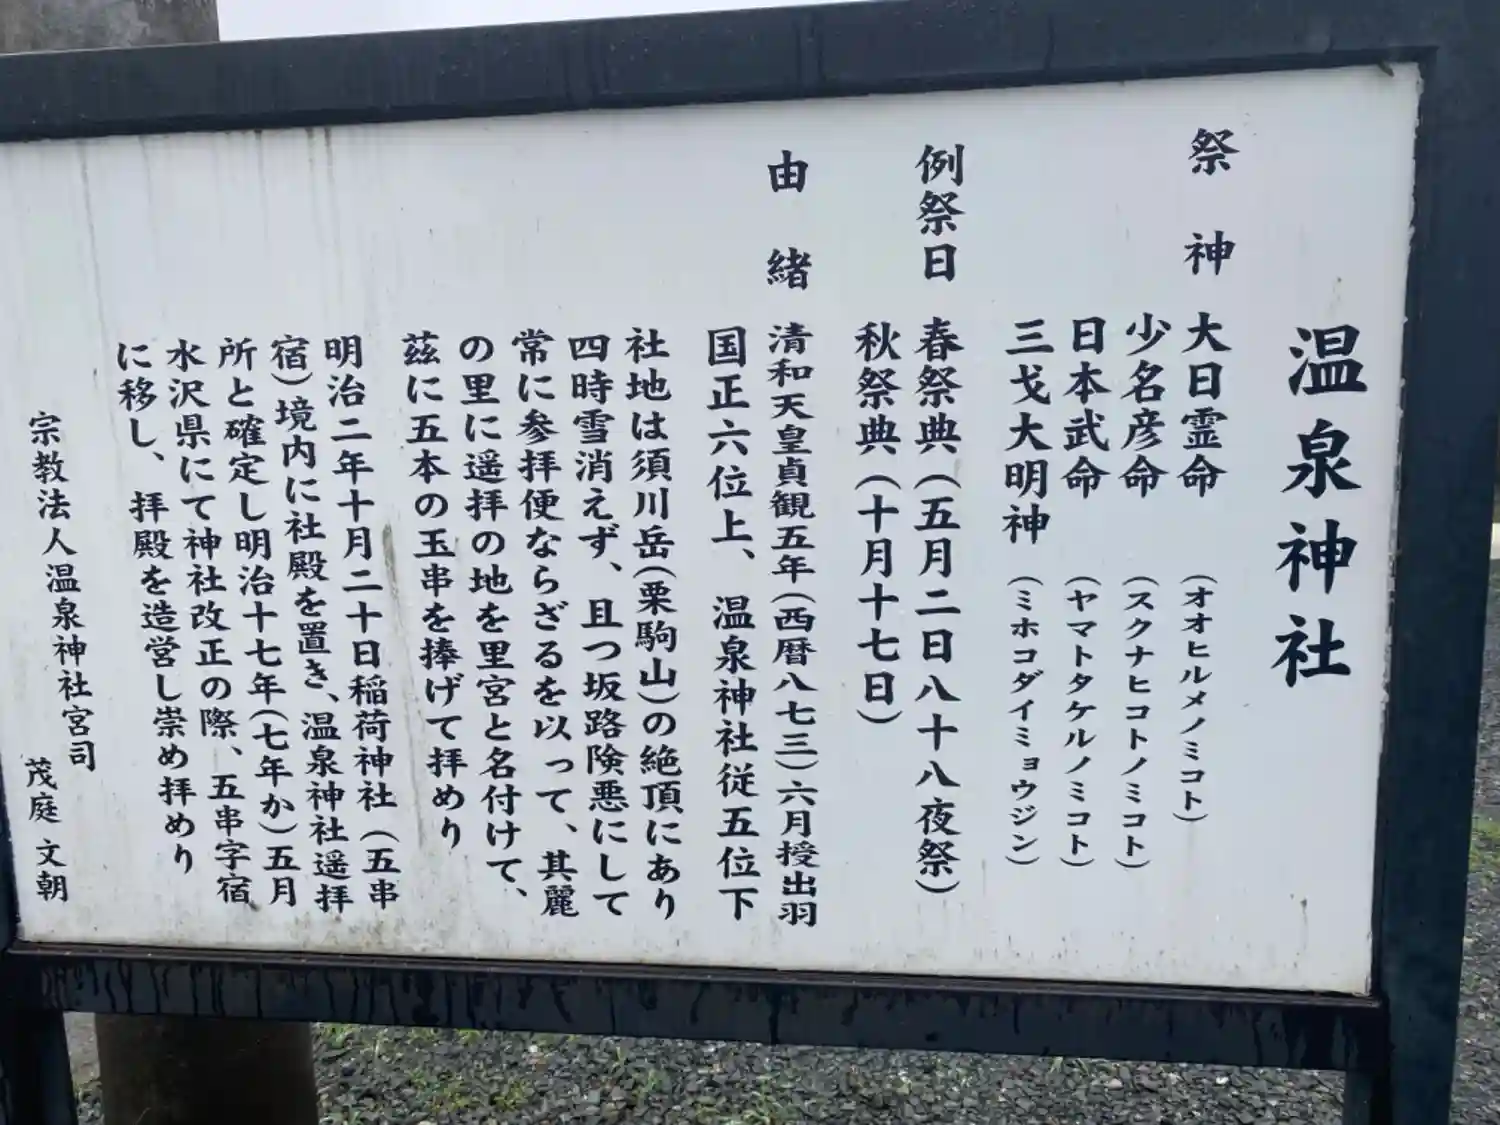 温泉神社
祭神 大日霊命 (オオヒルメノミコト)
少名彦命 (スクナヒコトノミコト)
日本武命 (ヤマトタケルノミコト)
三戈大明神 (ミホコダイミョウジン)
例祭日 春祭典(五月二日八十八夜祭)
秋祭典(十月十七日)
由緒 清和天皇貞観五年(西暦八七三)六月授出羽
国正六位上、温泉神社従五位下
社地は須川岳(栗駒山)の絶頂にあり
四時雪消えず、且つ坂路険悪にして
常に参拝便ならざるを以って、其麗
の里に遥拝の地を里宮と名付けて、
茲に五本の玉串を捧げて拝めり
明治二年十月二十日稲荷神社(五串
宿)境内に社殿を置き、温泉神社遥拝
所と確定し明治十七年(七年か)五月
水沢県にて神社改正の際、五串字宿
に移し、拝殿を造営し崇め拝めり
宗教法人温泉神社宮司
茂庭文朝